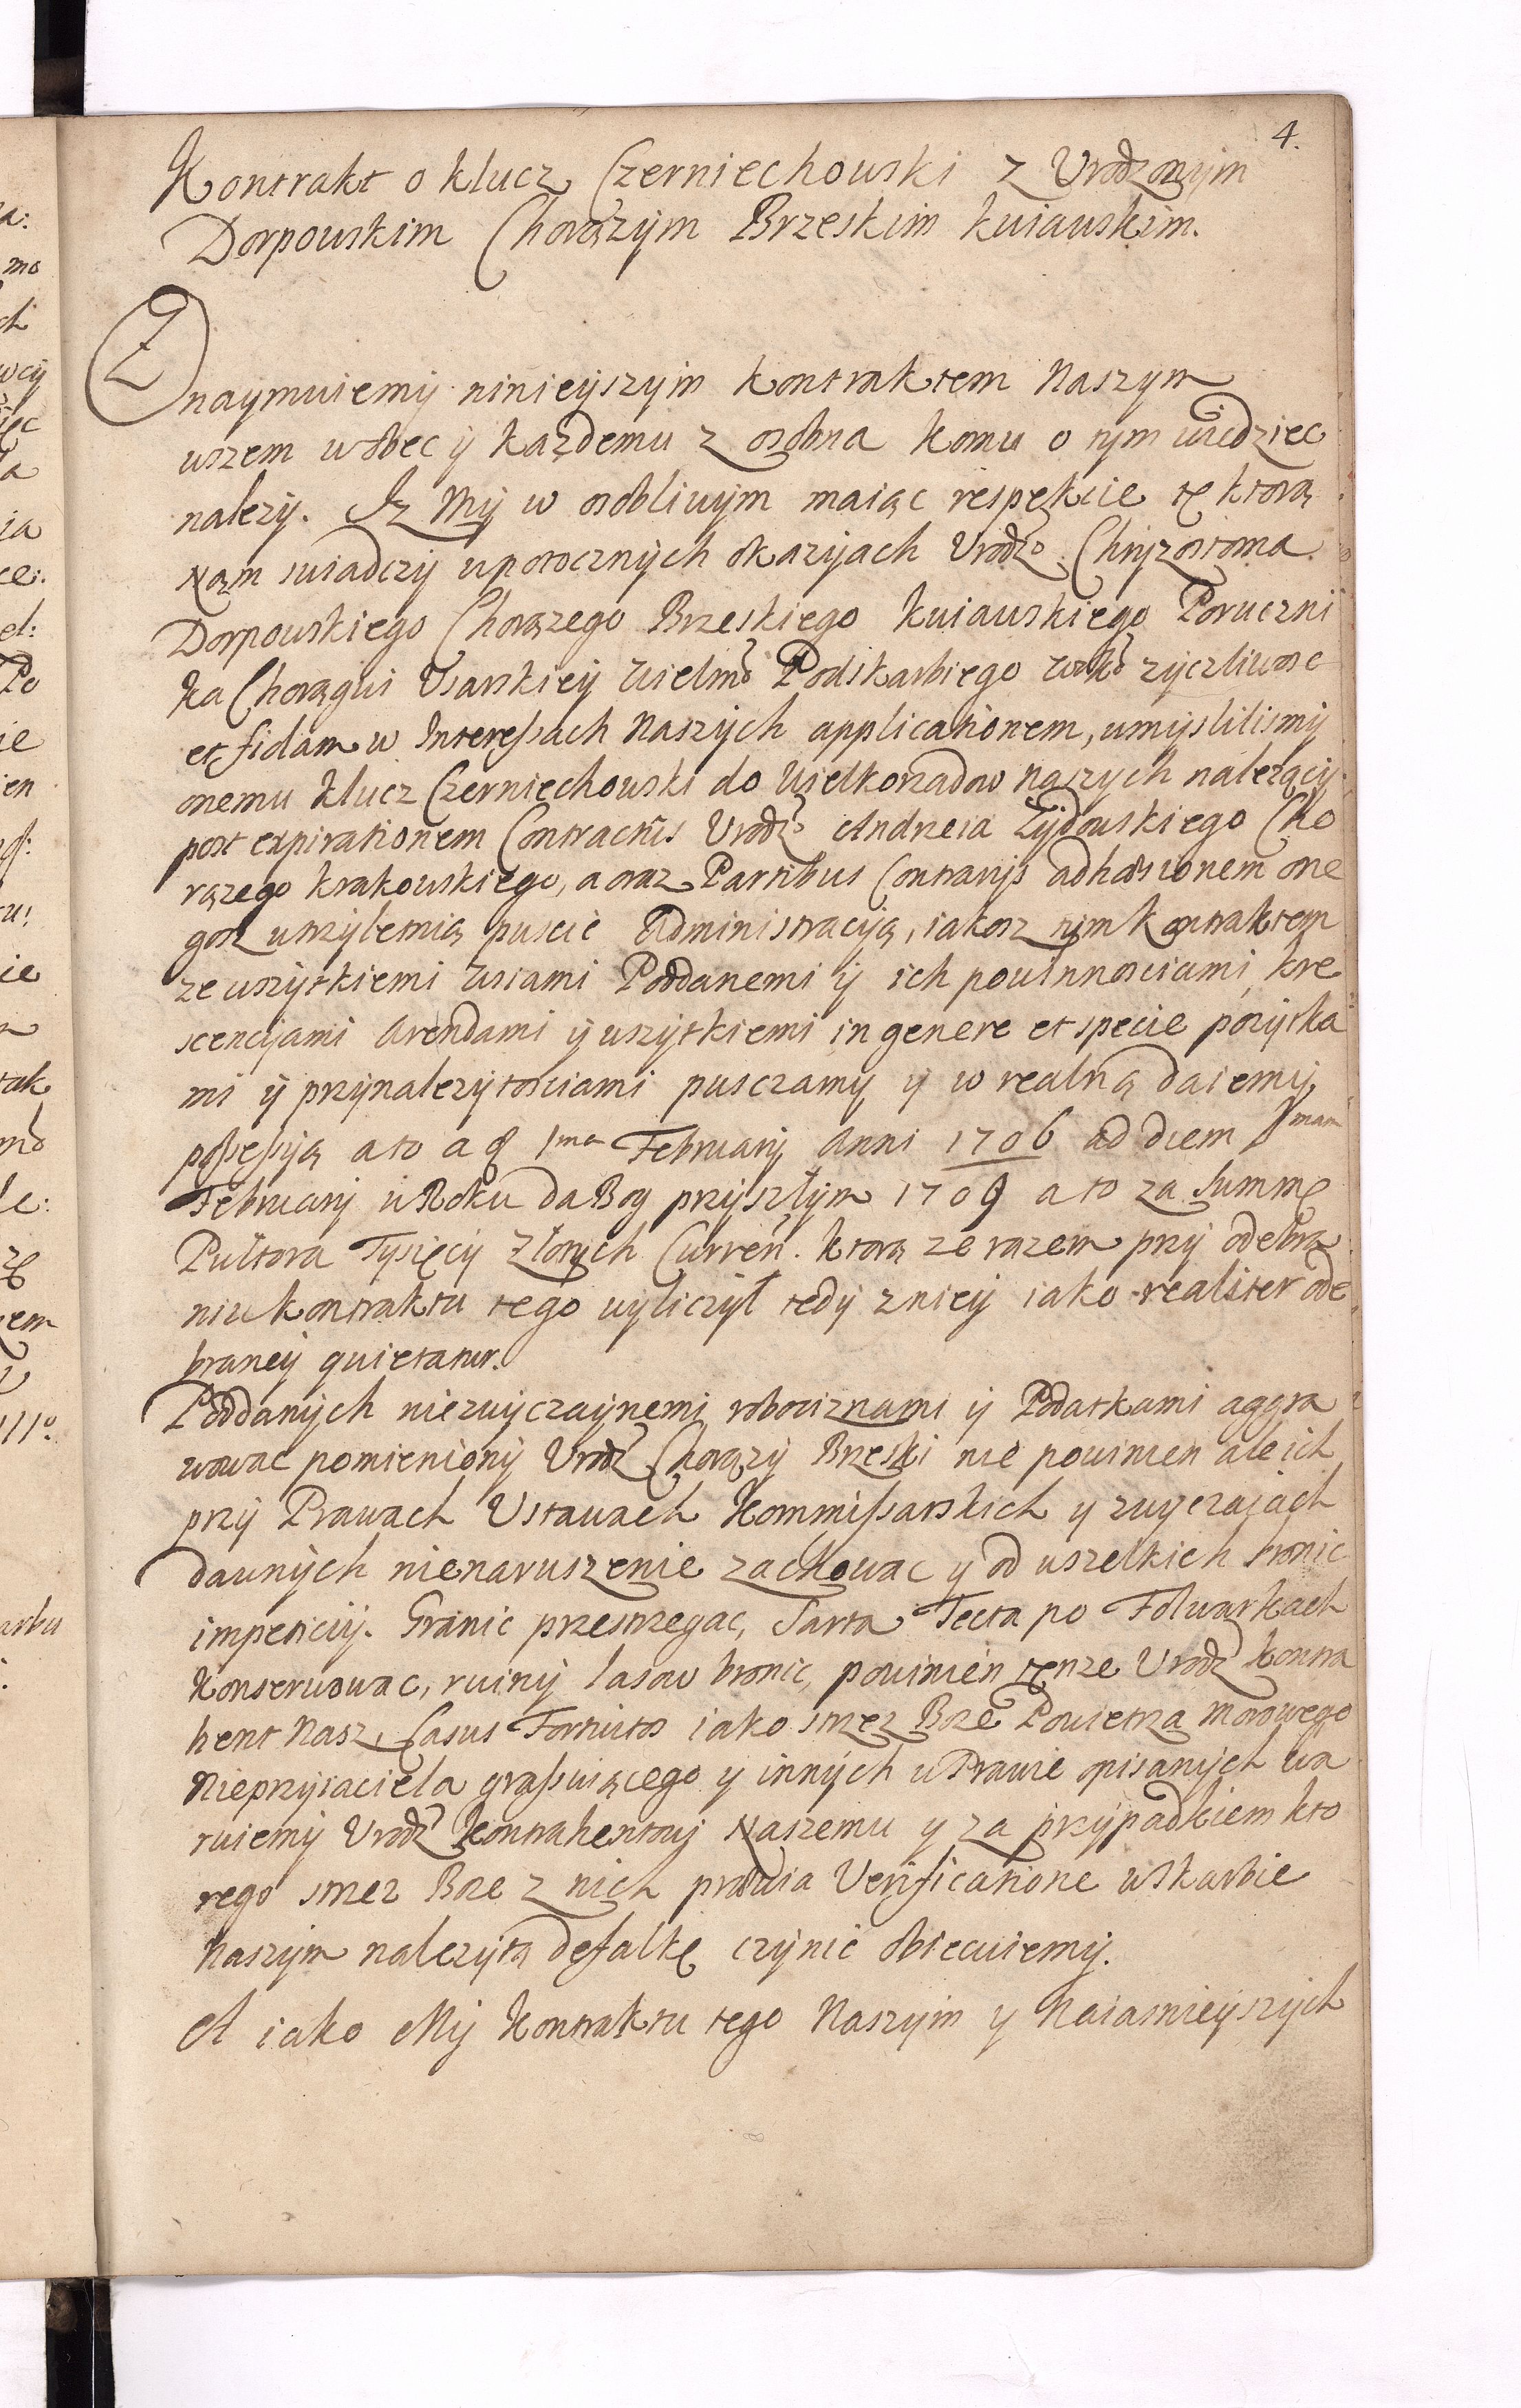 4.
Kontrakt o klucz Czerniechowski z Urodzonym
Dorpowskim Chorązym Brzeskim kuiawskim.
Znaymuiemy ninieyszym kontraktem Naszym
wszem wobec y kazdemu z osobna komu o tym wiedziec
nalezy. Iz My w osobliwym maiąc respekcie tę ktorą
Nąm swiadczy upotocznych okazyjach Urodzo Chryzostoma
Dorpowskiego Chorązego Brzeskiego kuiawskiego Poruczni
ka Chorągwi Usarskiey Wielmo Podskarbiego WKo zyczliwosc
et fidam w Interessach Naszych applicationem, umyslilismy
onemu klucz Czerniechowski do Wielkorządow naszych nalezący
post expirationem Contractus Urodzo Andrzeia Zydowskiego Cho
rązego krakowskiego, a oraz Partibus Contrarijs adhæsionem one
goz utrzyletnią puscic Administracyą, iakosz tym kontraktem
ze wszytkiemi wsiami Poddanemi y ich powinnosciami, kre
scencyami Arendami y wszytkiemi in genere et specie pozytka
mi y przynalezytosciami pusczamy y w realną daiemy
possessyą a to a d 1ma February Anni 1706 ad diem 1mam
February w Roku da Bog przyszłym 1709 a to za summę
Pułtora Tysięcy Złotych Curren. ktorą ze razem przy odebra
niu kontraktu tego wyliczył tedy z niey iako realiter ode
braney quietatur.
Poddanych niezwyczaynemi robociznami y Podatkami aggra
wowac pomieniony Urodz Chorązy Brzeski nie powinien ale ich
przy Prawach Ustawach Kommissarskich y zwyczaiach
dawnych nienaruszenie zachowac y od wszelkich bronic
impeticiy. Granic przestrzegac, Sarta Tecta po Folwarkach
konserwowac, ruiny lasow bronic, powinien tenze Urodz kontra
hent Nasz, Casus Fortuitos iako strzez Boze Powietrza morowego
Nieprzyiaciela grassuiącego y innych w Prawie opisanych wa
ruiemy Urodz kontrahentowi Naszemu y za przypadkiem kto
rego strzez Boze z nich prawia Verificatione w Skarbie
Naszym nalezytą defalkę czynic obiecuiemy.
A iako My kontraktu tego Naszym y Naiasnieyszych